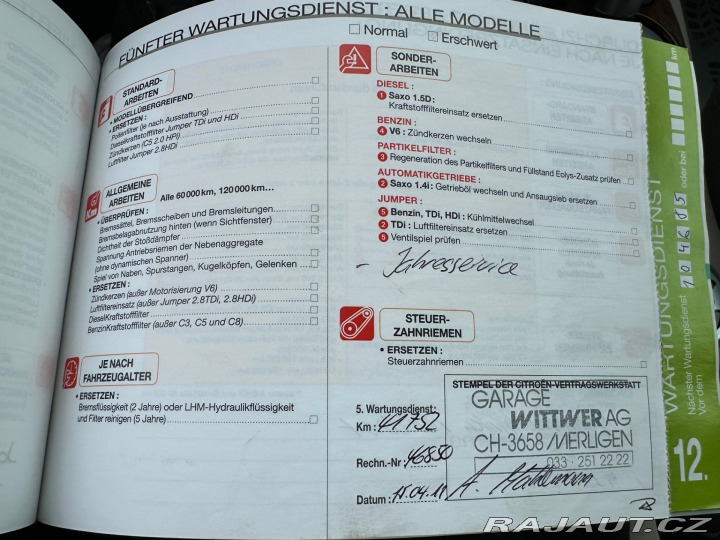 FÜNFTER WARTUNGSDIENST : ALLE MODELLE
Normal
Erschwert
STANDARD-
ARBEITEN
• MODELLÜBERGREIFEND
• ERSETZEN :
Pollenfilter (je nach Ausstattung)
Dieselkraftstofffilter Jumper TDi und HDi
Zündkerzen (C5 2.0 HPi)
Luftfilter Jumper 2.8HDi
Km
ALLGEMEINE
ARBEITEN
Alle 60 000 km, 120 000 km...
• ÜBERPRÜFEN :
Bremssättel, Bremsscheiben und Bremsleitungen
Bremsbelagabnutzung hinten (wenn Sichtfenster)
Dichtheit der Stoßdämpfer
Spannung Antriebsriemen der Nebenaggregate
(ohne dynamischen Spanner)
Spiel von Naben, Spurstangen, Kugelköpfen, Gelenken ....
• ERSETZEN :
Zündkerzen (außer Motorisierung V6)
Luftfiltereinsatz (außer Jumper 2.8TDi, 2.8HDi)
DieselKraftstofffilter
BenzinKraftstofffilter (außer C3, C5 und C8)
JE NACH
FAHRZEUGALTER
• ERSETZEN :
Bremsflüssigkeit (2 Jahre) oder LHM-Hydraulikflüssigkeit
und Filter reinigen (5 Jahre)
SONDER-
ARBEITEN
DIESEL :
1 Saxo 1.5D :
Kraftstofffiltereinsatz ersetzen
BENZIN :
4 V6 : Zündkerzen wechseln
PARTIKELFILTER :
3 Regeneration des Partikelfilters und Füllstand Eolys-Zusatz prüfen
AUTOMATIKGETRIEBE :
2 Saxo 1.4i : Getrieböl wechseln und Ansaugsieb ersetzen
JUMPER :
5 Benzin, TDi, HDi : Kühlmittelwechsel
2 TDi : Luftfiltereinsatz ersetzen
5 Ventilspiel prüfen
- Jahresservice
STEUER-
ZAHNRIEMEN
• ERSETZEN :
Steuerzahnriemen
STEMPEL DER CITROËN-VERTRAGSWERKSTATT
GARAGE
WITTWER AG
CH-3658 MERLIGEN
033 - 251 22 22
5. Wartungsdienst:
Km : 41752
Rechn.-Nr : 46850
Datum : 15.04.11
WARTUNGSDIENST
Nächster Wartungsdienst
104685 oder bei
km
Vor dem
12.
RAJAUT.CZ